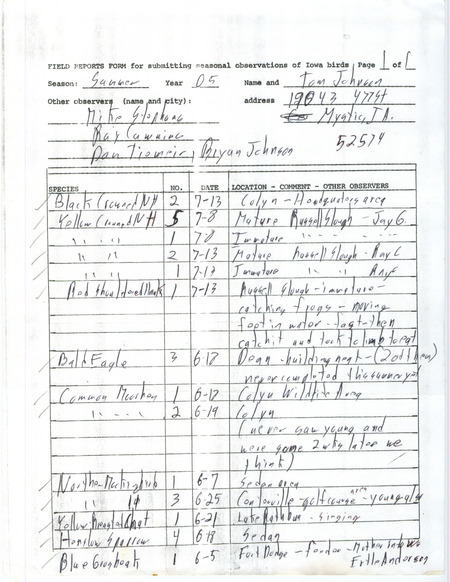 FIELD REPORTS FORM for submitting seasonal observations of Iowa birds Page 1 of 1
Season: Summer Year 05 Name and Tom Johnson
Other observers (name and city): address 19043 477 St
Mike Stephens Mystic, IA.
Ray Cummins 52574
Dan Bryan Johnson
SPECIES NO. DATE LOCATION - COMMENT - OTHER OBSERVERS
Black Crowned NH 2 7-13 Colyn - Headquarters area
Yellow Crowned NH 5 7-8 Mature Russell Slough - Jay G.
" " " 1 7-8 Immature " "
" " 2 7-13 Mature Russell Slough - Ray C
" " " 1 7-13 Immature " " Ray C
Red Shouldered Hawk 1 7-13 Russell Slough - immature -
catching frogs - moving
foot in water - fast - then
catch it and took to limb to eat
Bald Eagle 3 6-18 Dean - building nest - (2 of them)
never completed this summer
Common Moorhen 1 6-12 Colyn Wildlife Area
" " 2 6-19 Colyn
(never saw young and
were gone 2 wks later we
think)
Northern Mockingbird 1 6-7 Sedan area
" " 3 6-25 Centerville - golf course area - young also
Yellow Breasted Chat 1 6-21 Lake Rathbun - singing
Henslow Sparrow 4 6-18 Sedan
Blue Grosbeak 1 6-5 Fort Dodge - feeder - Mother in laws
Anderson